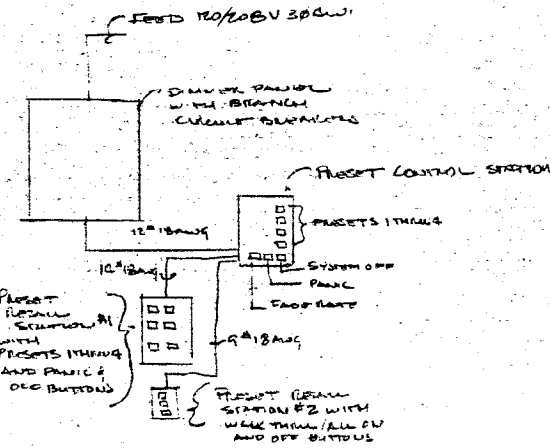 FEED 120/208V 3Ø4W.
DIMMER PANEL
WITH BRANCH
CIRCUIT BREAKERS
PRESET CONTROL STATION
PRESETS 1 THRU 4
12#18AWG
SYSTEM OFF
PANIC
FADE RATE
#18AWG
PRESET
RECALL
STATION #1
WITH
PRESETS 1 THRU 4
AND PANIC &
OFF BUTTONS
9#18AWG
PRESET RECALL
STATION #2 WITH
WALK THRU/ALL ON
AND OFF BUTTONS